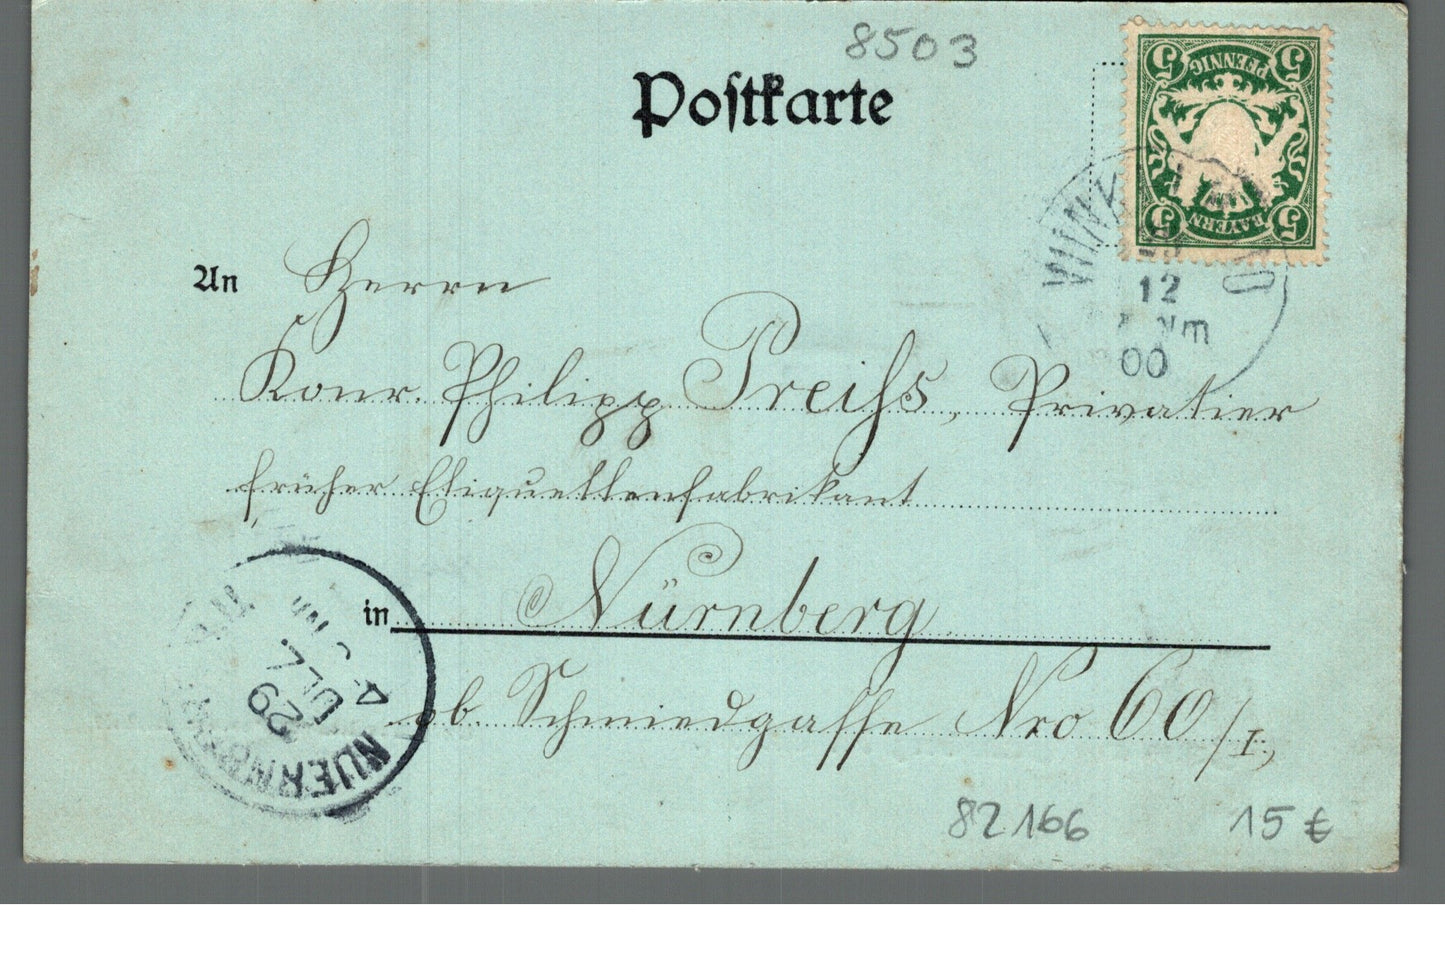 8503
Postkarte
5 5
PFENNIG
BAYERN
5 5
12
Nm
00
An Herrn
Konr. Philipp Preiß, Privatier
früher Etiquettenfabrikant
in Nürnberg
ob. Schmiedgasse Nro 60/I.,
NUERNB
29
JUL
4-5 Nm
82166
15 €